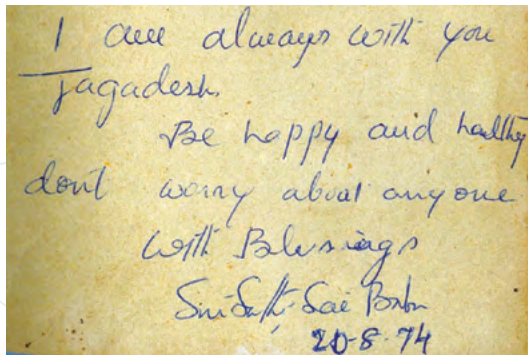 I am always with you
Jagadesh.
Be happy and healthy
dont worry about anyone
with Blessings
Sri Sathi Sai Baba
20-8-74